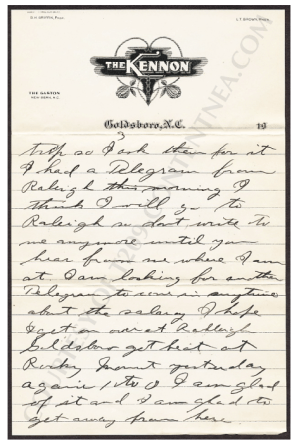 THE KENNON
THE GASTON
NEW BERN, N.C.
Goldsboro, N.C. 19
3
trop so I ask them for it
I had a Telegram from
Raleigh this morning I
think I will go to
Raleigh so dont write to
me anymore until you
hear from me where I am
at I am looking for a
Telegram to come in anytime
about the salary I hope
I get on over at Raleigh
Goldsboro got beat at
Rocky Mount yesterday
again 1 to 0 I am glad
of it and I am glad to
get away from here